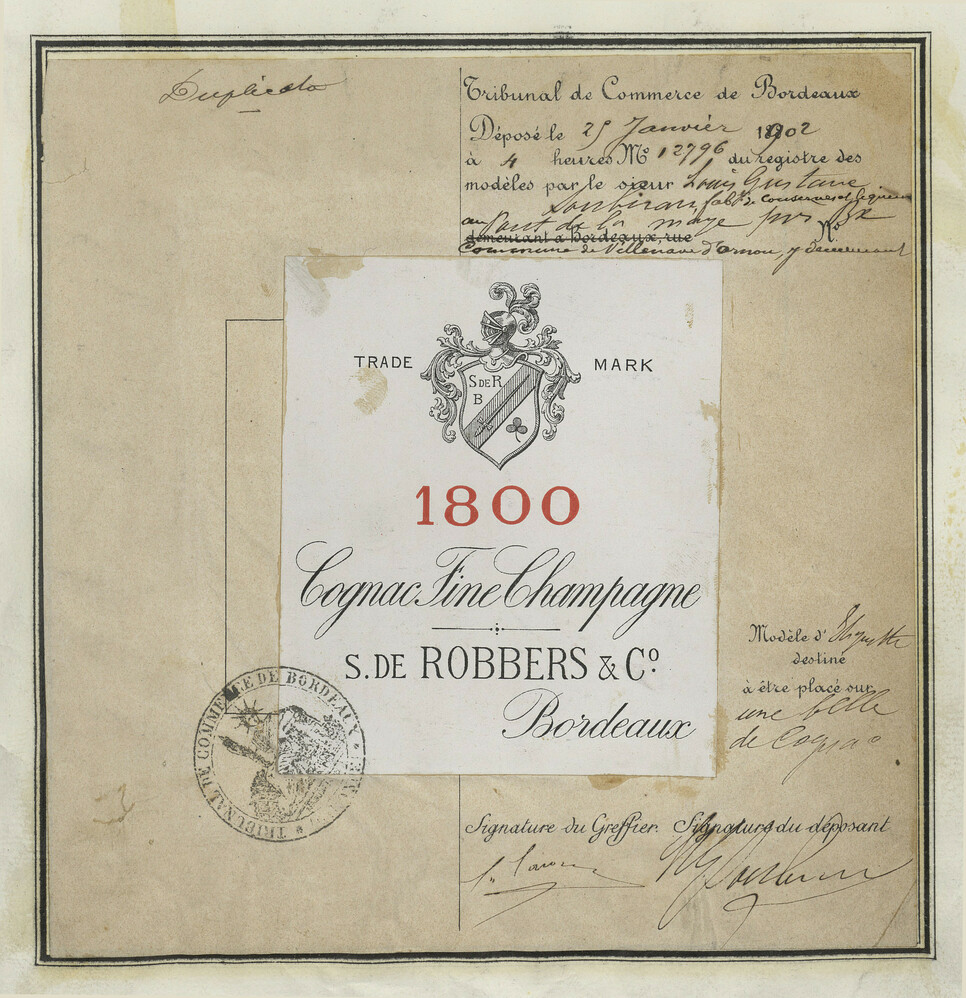 Duplicata
Tribunal de Commerce de Bordeaux
Déposé le 25 Janvier 1902
à 4 heures No 12796 du registre des
modèles par le sieur Louis Gustave
Soubiran fabt de conserves et liqueurs
au Pont de la Maye près No
demeurant à Bordeaux, rue
Commune de Villenave d'Ornon, y demeurant
TRADE MARK
S DE R
B
1800
Cognac Fine Champagne
S. DE ROBBERS & Co.
Bordeaux
Modèle d'Etiquette
destiné
à être placé sur
une
de Cognac
TRIBUNAL DE COMMERCE DE BORDEAUX
Signature du Greffier. Signature du déposant